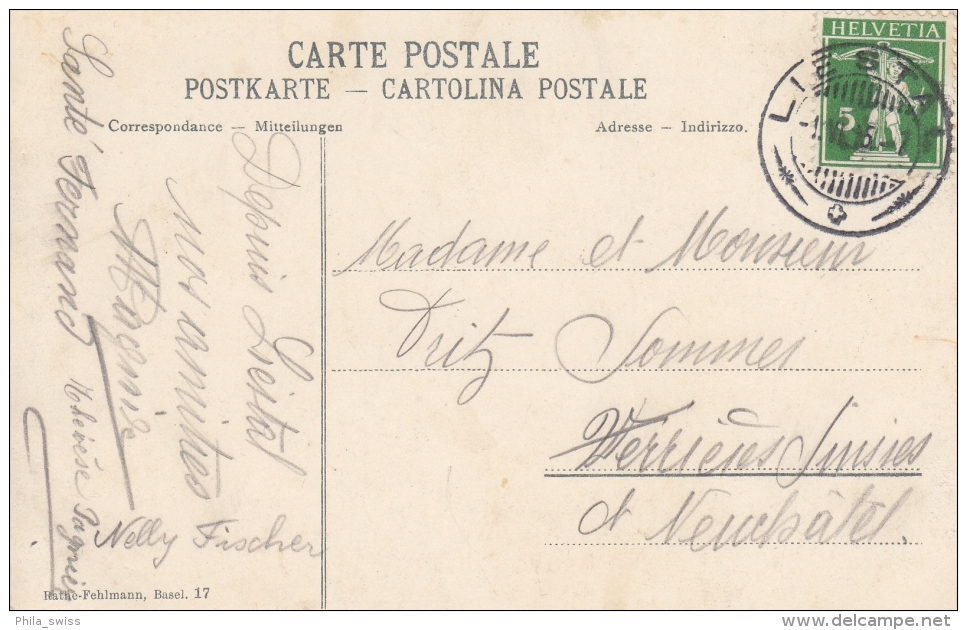 CARTE POSTALE
POSTKARTE — CARTOLINA POSTALE
Correspondance — Mitteilungen
Adresse — Indirizzo.
HELVETIA
5
LIESTAL
Depuis Liestal
nos amitiés
Nelly Fischer
Santé Fernand
Thérèse
Madame et Monsieur
Fritz Sommer
Verrières Suisses
Ct Neuchâtel.
Rathe-Fehlmann, Basel. 17
Phila_swiss
delcampe.net